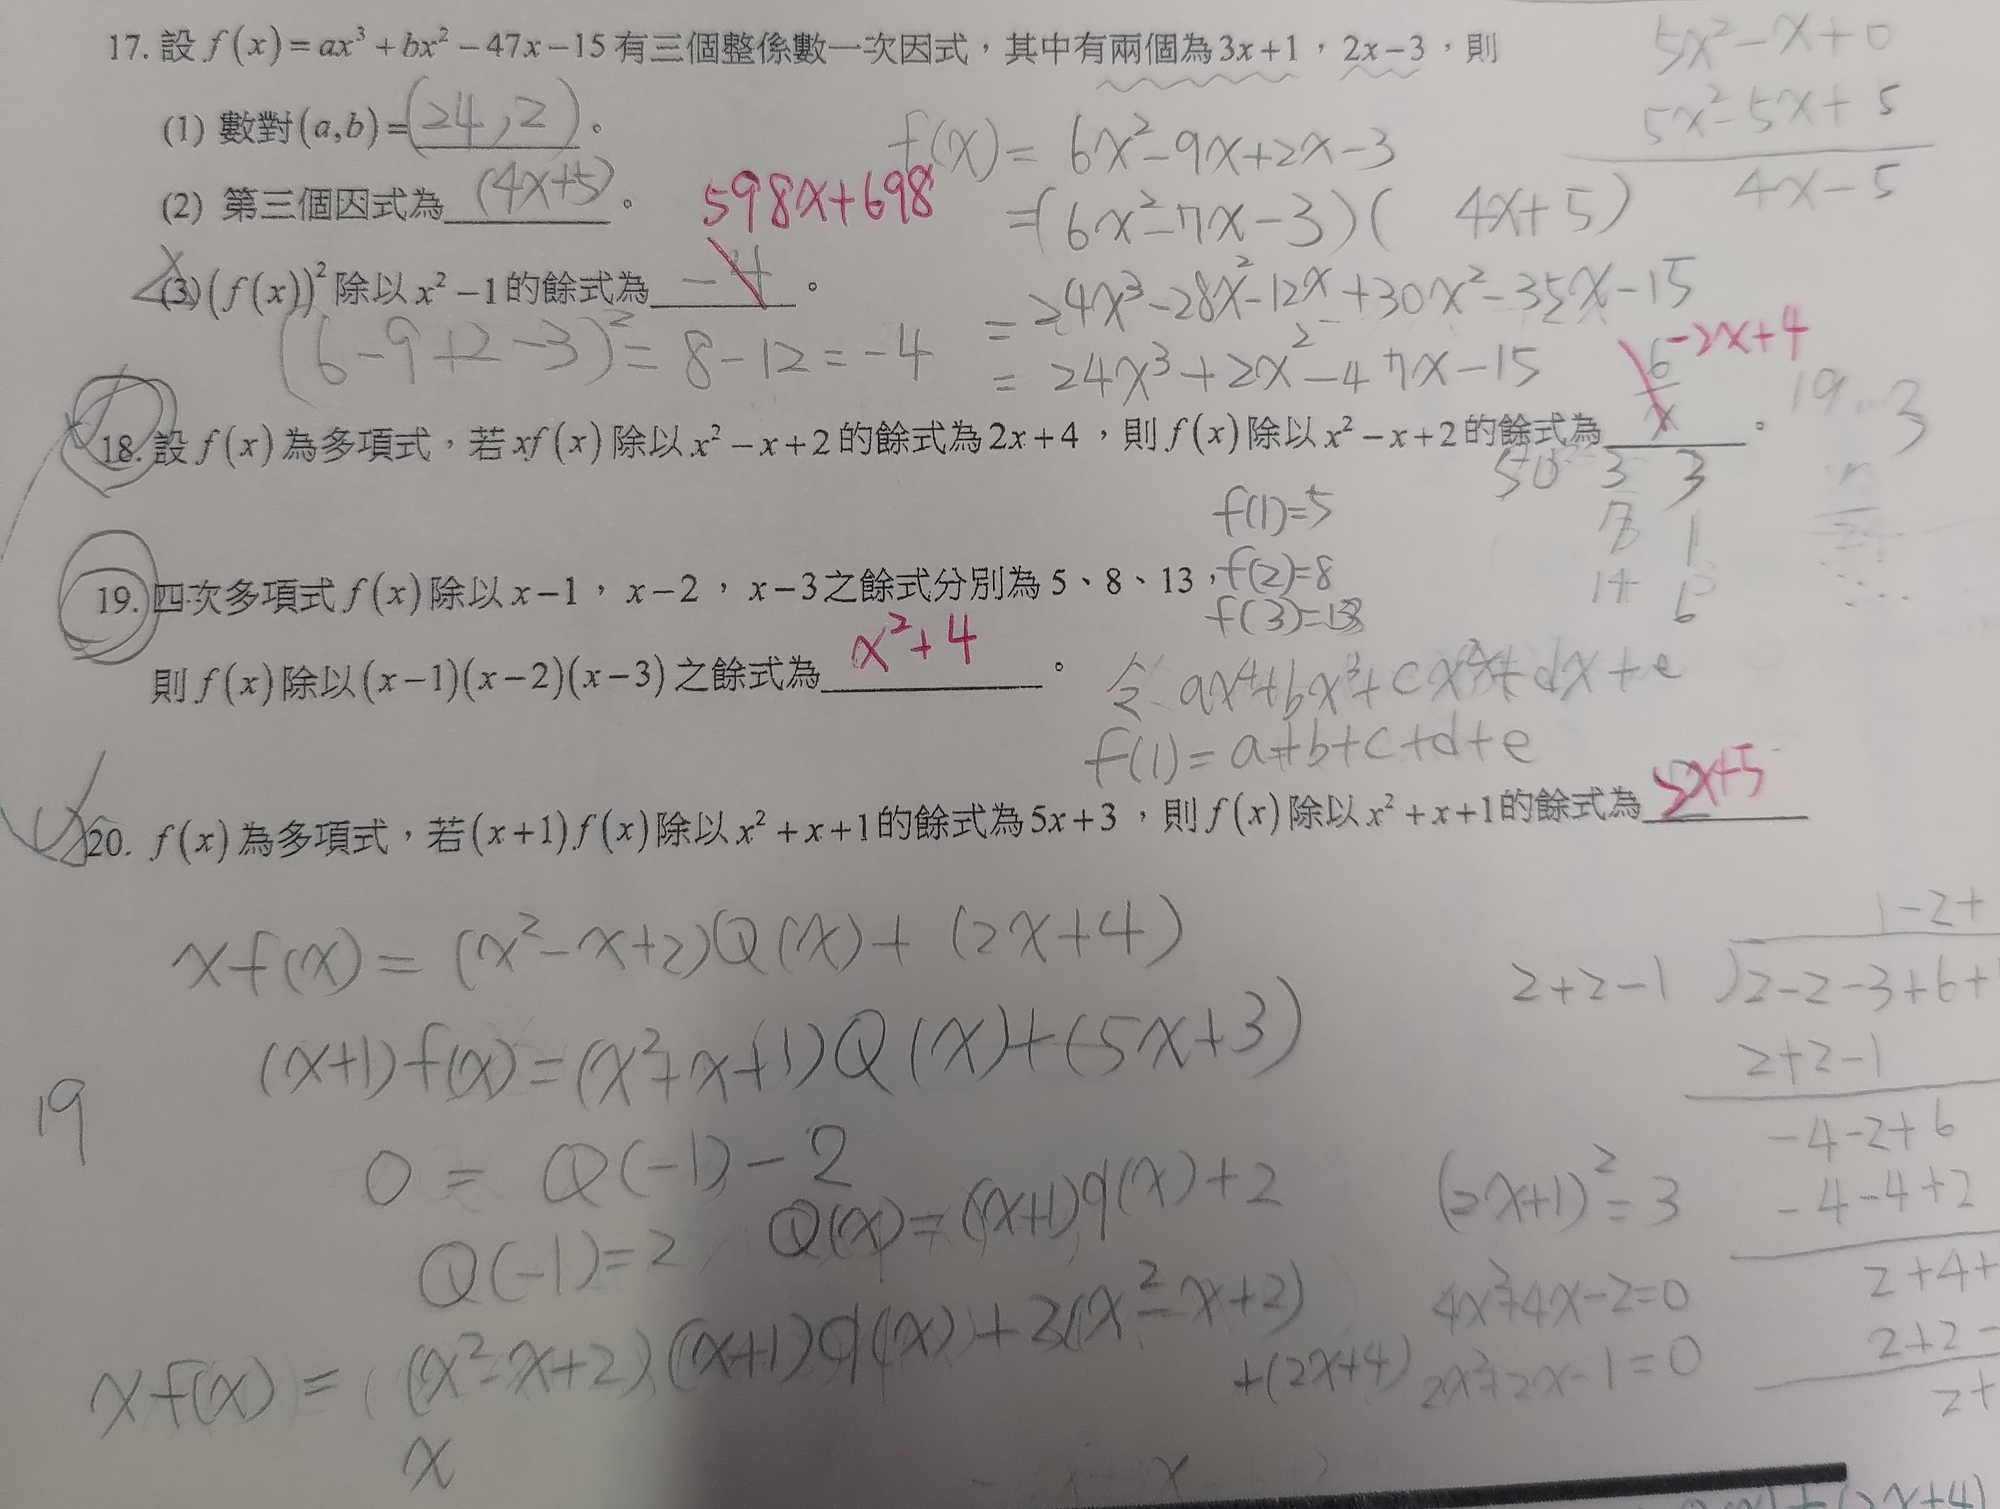 17. 設 f(x)=ax³+bx²−47x−15 有三個整係數一次因式，其中有兩個為 3x+1，2x−3，則
5x²−x+0
5x²−5x+5
4x−5
(1) 數對(a,b)=(24,2)。
f(x)= 6x²−9x+2x−3
(2) 第三個因式為(4x+5)。
598x+698
=(6x²−7x−3)( 4x+5)
(3) (f(x))² 除以 x²−1 的餘式為 −4。
=24x³−28x²−12x+30x²−35x−15
(6−9+2−3)²=8−12=−4
=24x³+2x²−47x−15
−2x+4
19...3
18. 設 f(x) 為多項式，若 xf(x) 除以 x²−x+2 的餘式為 2x+4，則 f(x) 除以 x²−x+2 的餘式為 6/x。
f(1)=5
19. 四次多項式 f(x) 除以 x−1，x−2，x−3 之餘式分別為 5、8、13，
f(2)=8
f(3)=13
則 f(x) 除以 (x−1)(x−2)(x−3) 之餘式為 x²+4。
令 ax⁴+bx³+cx²+dx+e
f(1)=a+b+c+d+e
20. f(x) 為多項式，若 (x+1)f(x) 除以 x²+x+1 的餘式為 5x+3，則 f(x) 除以 x²+x+1 的餘式為 2x+5
xf(x)=(x²−x+2)Q(x)+(2x+4)
(x+1)f(x)=(x²+x+1)Q(x)+(5x+3)
19
0 = Q(−1)−2
Q(−1)=2
Q(x)=(x+1)q(x)+2
xf(x)=(x²−x+2)(x+1)q(x)+3(x²−x+2)
+(2x+4)
x
1−2+
2+2−1 )2−2−3+6+1
2+2−1
−4−2+6
−4−4+2
2+4+
2+2−
2+
(2x+1)²=3
4x²+4x−2=0
2x²+2x−1=0